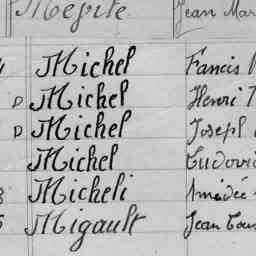 Megite. Jean Mar
Michel Fancis
D Michel Henri
D Michel Joseph
Michel Ludovic
Micheli Amédée
Migault Jean Lou